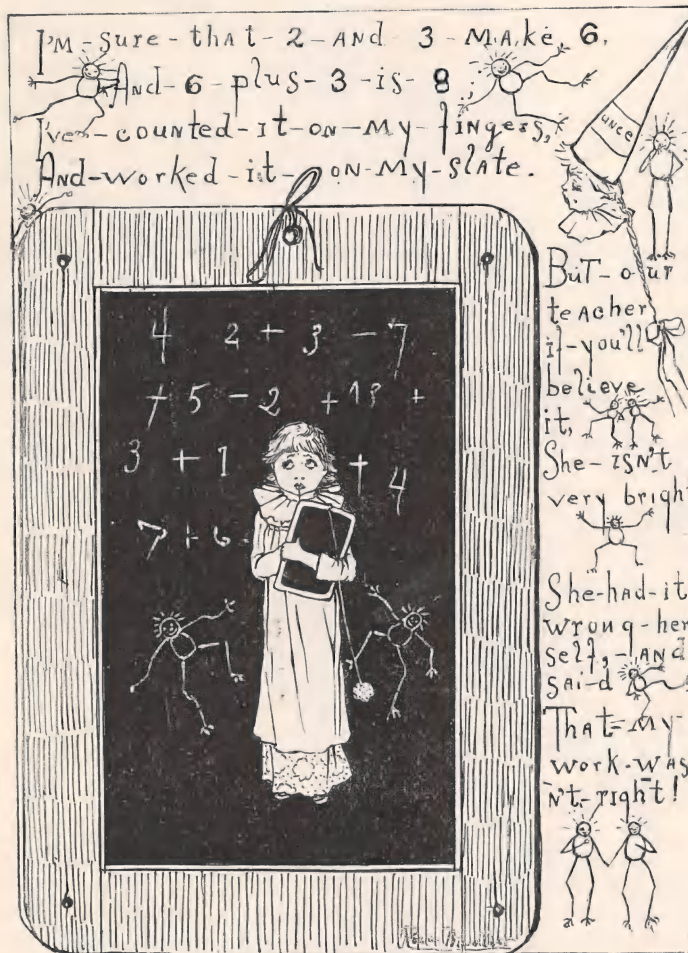 I'M-sure-that-2-AND 3-MAke 6,
And-6-plus-3-is-8;
I've-counted-it-on-My-fingers,
And-worked-it-on-My-slate.
unce
BuT-our
teacher
if-you'll
believe
it,
She-isN't
very bright
She-had-it
wrong-her
self,-AND
sai-d
That-My-
work-was
n't-right!
4 2 + 3 - 7
+ 5 - 2 + 13 +
3 + 1 + 4
7 + 6